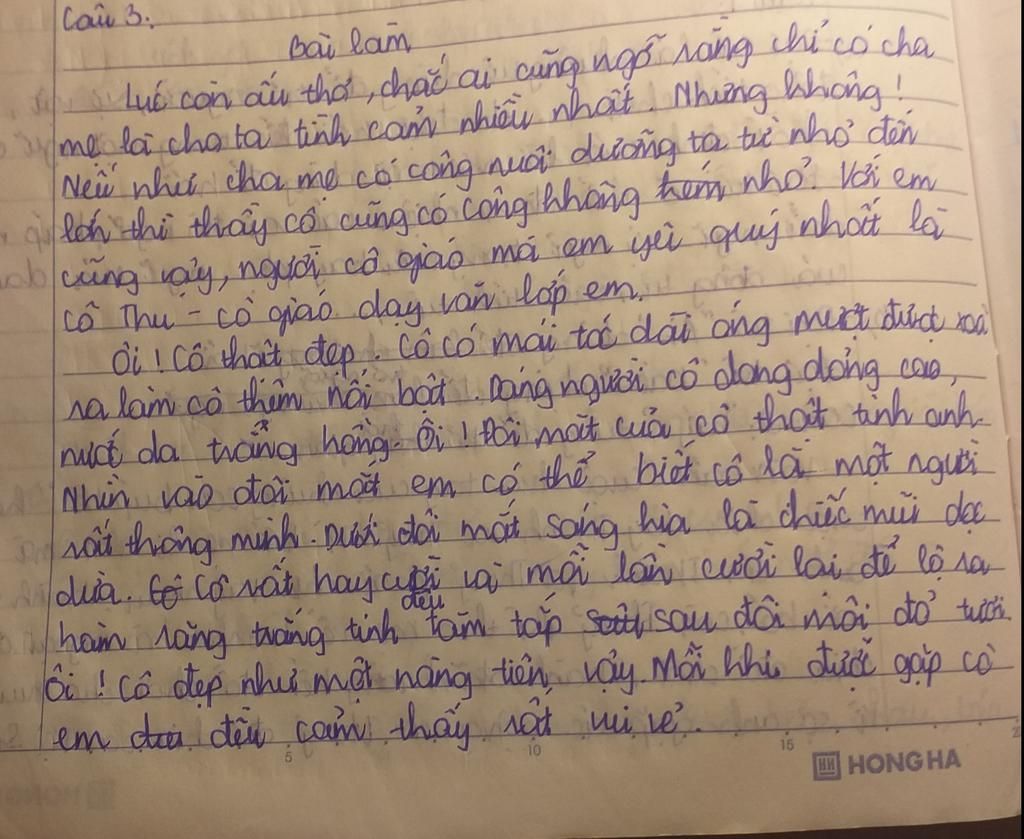 Câu 3:
Bài làm
Lúc còn ấu thơ, chắc ai cũng ngỡ rằng chỉ có cha
mẹ là cho ta tình cảm nhiều nhất. Nhưng không!
Nếu như cha mẹ có công nuôi dưỡng ta từ nhỏ đến
lớn thì thầy cô cũng có công không hém nhỏ. Với em
cũng vậy, người cô giáo mà em yêu quý nhất là
cô Thu - cô giáo dạy văn lớp em.
Ôi! Cô thật đẹp. Cô có mái tóc dài óng mượt được xoã
ra làm cô thêm nổi bật. Dáng người cô dong dỏng cao,
nước da trắng hồng. Ôi! Đôi mắt của cô thật tinh anh.
Nhìn vào đôi mắt em có thể biết cô là một người
rất thông minh. Dưới đôi mắt sáng kia là chiếc mũi dọc
dừa. Cô rất hay cười và mỗi lần cười lại để lộ ra
hàm răng trắng tinh đều tăm tắp sau đôi môi đỏ tươi.
Ôi! Cô đẹp như một nàng tiên vậy. Mỗi khi được gặp cô
em đều cảm thấy rất vui vẻ.
5 10 15
HH HONG HA